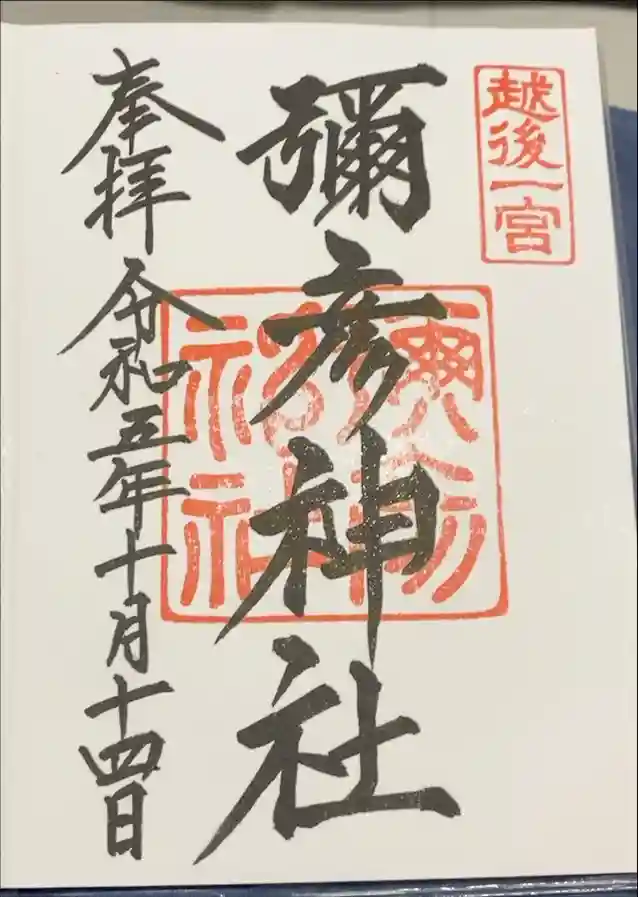 越後一宮
彌彦神社
奉拝 令和五年十月十四日
彌彦
神社